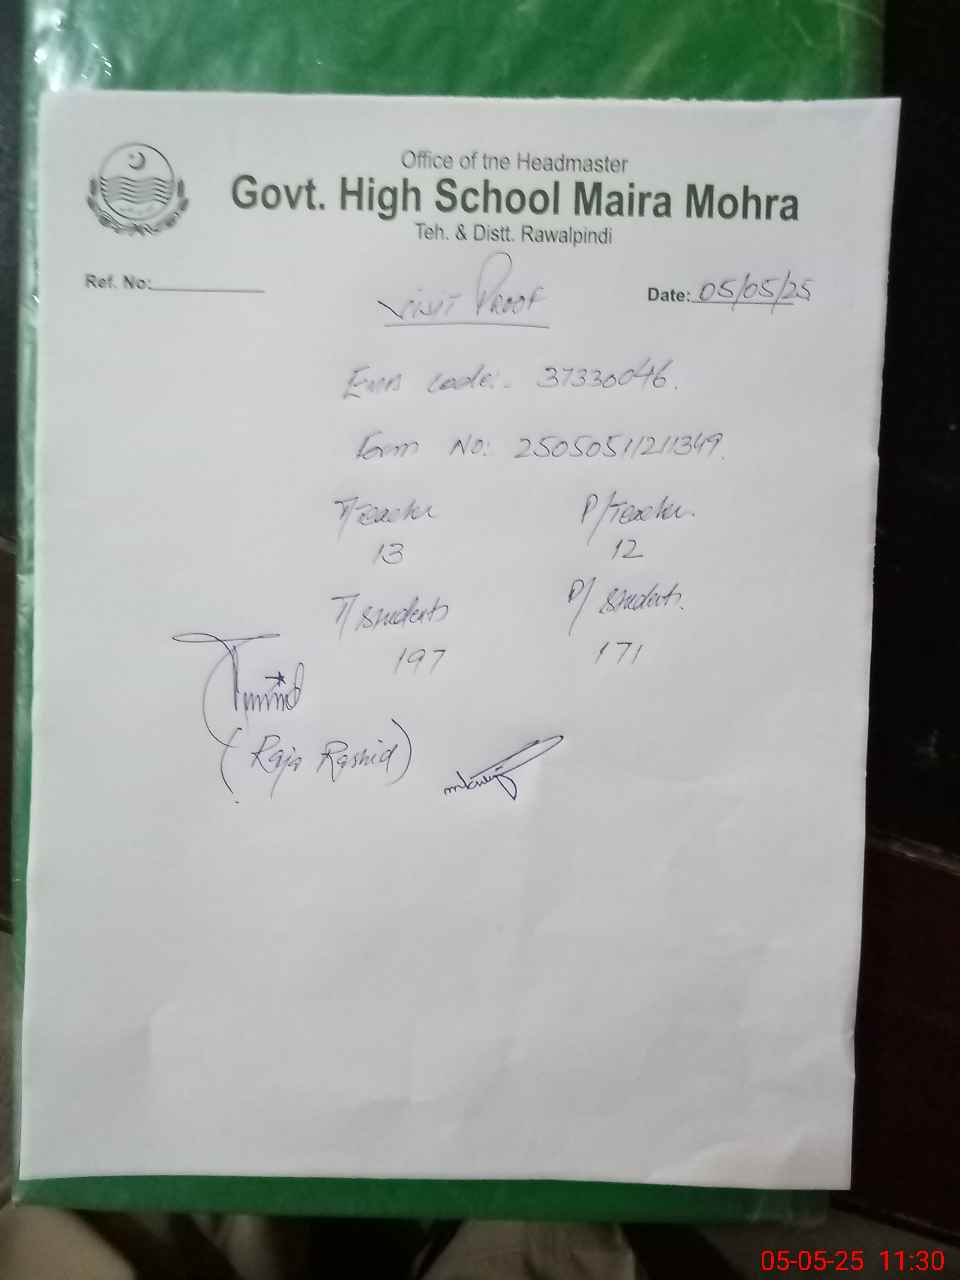 Office of the Headmaster
Govt. High School Maira Mohra
Teh. & Distt. Rawalpindi
Ref. No:
Date: 05/05/25
Visit Proof
Emis code:- 37330046.
Form No: 25050511211349.
T/Teacher P/Teacher.
13 12
T/Students P/Students.
197 171
(Raja Rashid)
05-05-25 11:30